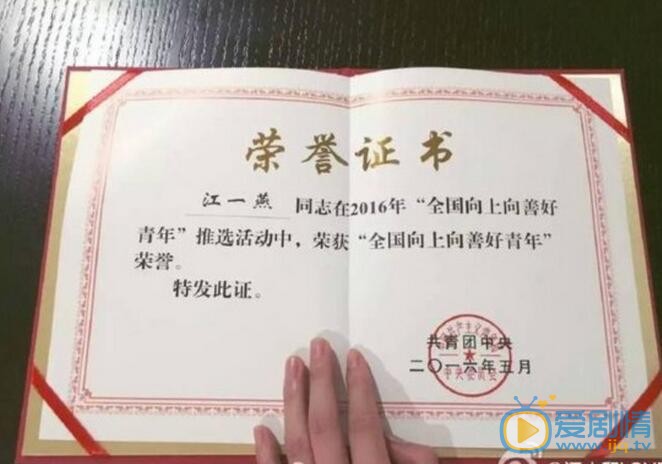 荣誉证书
江一燕 同志在2016年“全国向上向善好
青年”推选活动中，荣获“全国向上向善好青年”
荣誉。
特发此证。
共青团中央
二〇一六年五月
中央委员会
爱剧情
www.ijq.tv